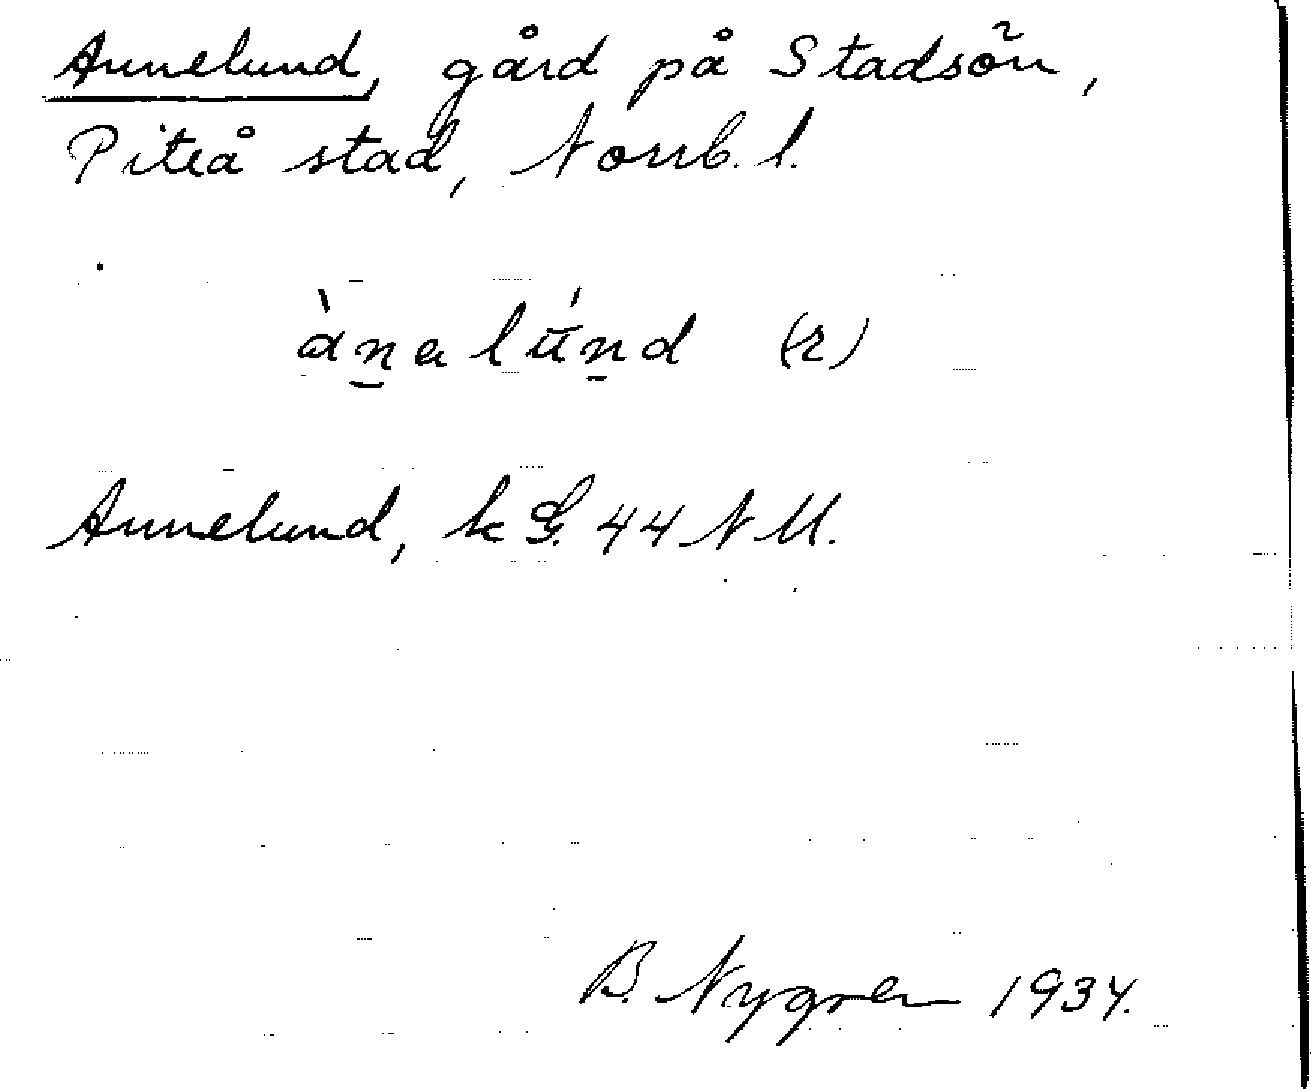 Annelund, gård på Stadsön,
Piteå stad, Norrb. l.
ànalúnd (r)
Annelund, k G. 44 NM.
B. Nygren 1934.